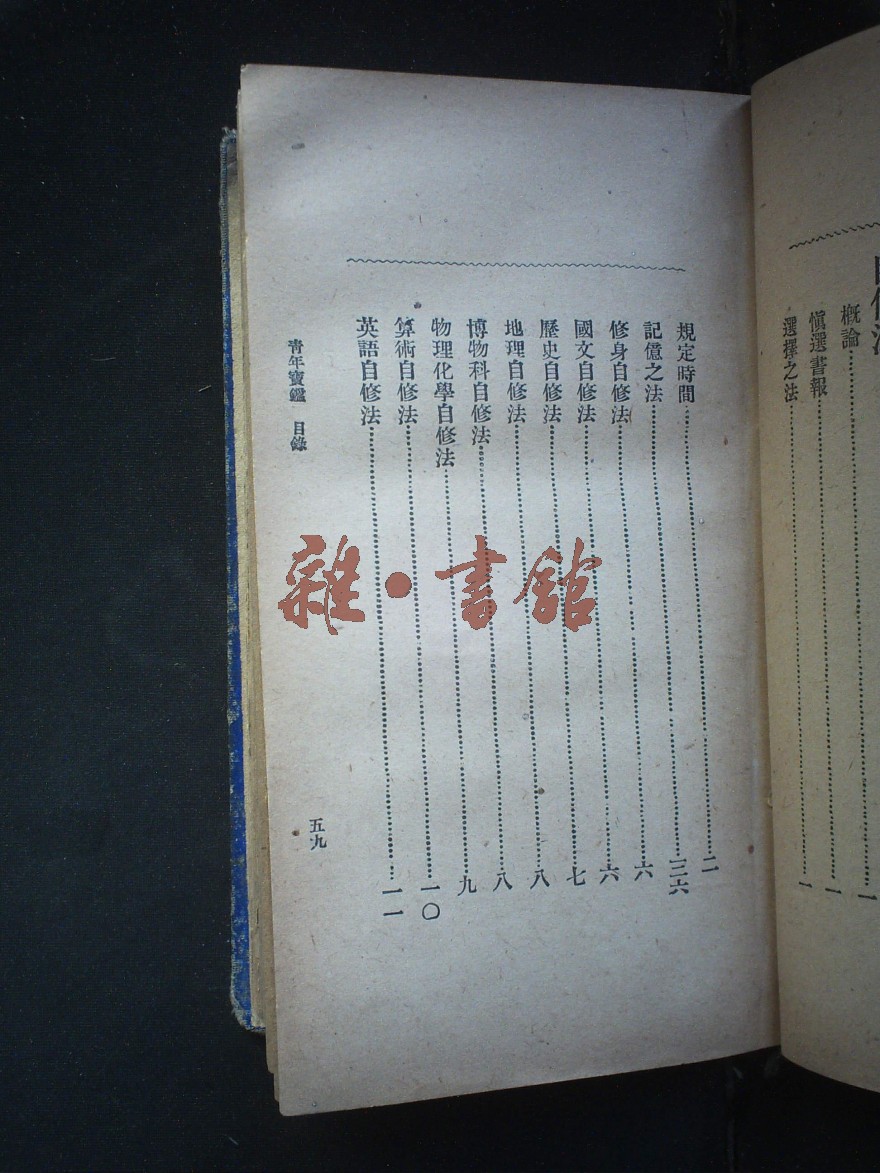 槪論……一
愼選書報……一
選擇之法……一
規定時間……二
記億之法……三六
修身自修法……六
國文自修法……六
歷史自修法……七
地理自修法……八
博物科自修法……八
物理化學自修法……九
算術自修法……一〇
英語自修法……一一
靑年寶鑑 目錄
五九
雜·書館